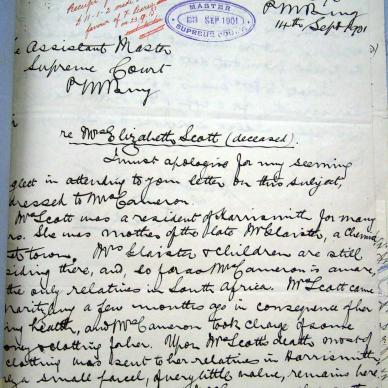 P.M.Burg
14th Sept 1901
MASTER
SEP 1901
SUPREME COURT
Assistant Master
Supreme Court
P.M.Burg
re Mrs Elizabeth Scott (deceased).
I must apologise for my seeming
glect in attending to your letter on this subject,
dressed to Mrs Cameron.
Mrs Scott was a resident of Harrismith for many
rs. She was mother of the late Mr Glaister, a
town. Mrs Glaister & children are still
siding there, and, so far as Mrs Cameron is aware,
the only relatives in South Africa. Mrs Scott came
only a few months ago in consequence of her
ing health, and Mrs Cameron took charge of some
clothing for her. Upon Mrs Scott's death most of
clothing was sent to her relatives in Harrismith,
a small parcel, of very little value, remains here